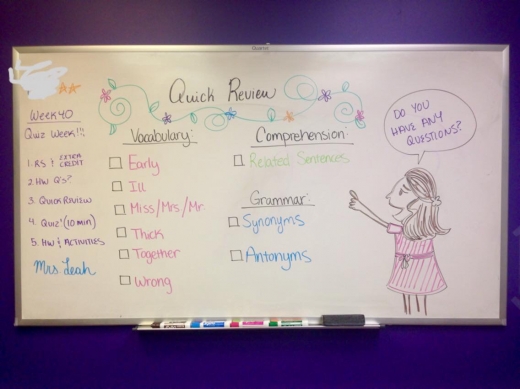 Quick Review
Week 40
Quiz Week!!
1. RS & EXTRA CREDIT
2. HW Q's?
3. Quick Review
4. Quiz! (10 min)
5. HW & Activities
Mrs. Leah
Vocabulary:
Early
Ill
Miss/Mrs/Mr.
Thick
Together
Wrong
Comprehension:
Related Sentences
Grammar:
Synonyms
Antonyms
DO YOU
HAVE ANY
QUESTIONS?